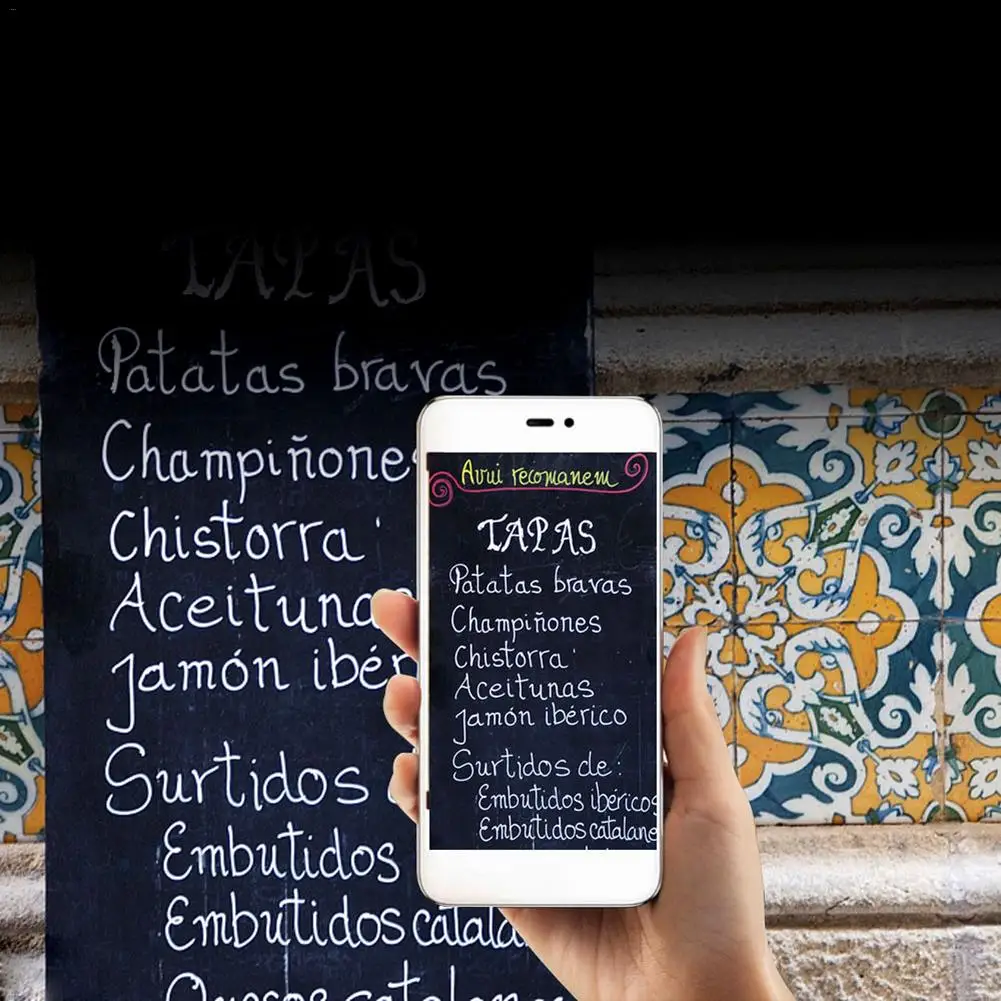 TAPAS
Patatas bravas
Champiñone
Chistorra
Aceituna
Jamón ibér
Surtidos
Embutidos
Embutidos catala
Quesos catalane
Avui recomanem
TAPAS
Patatas bravas
Champiñones
Chistorra
Aceitunas
Jamón ibérico
Surtidos de:
Embutidos ibéricos
Embutidos catalane